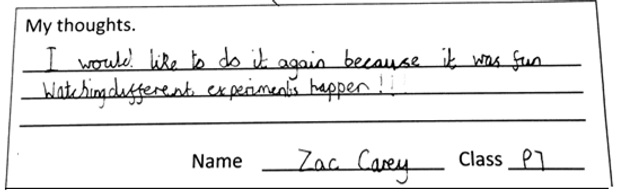 My thoughts.
I would like to do it again because it was fun
Watching different experiments happen!!
Name Zac Carey Class P7